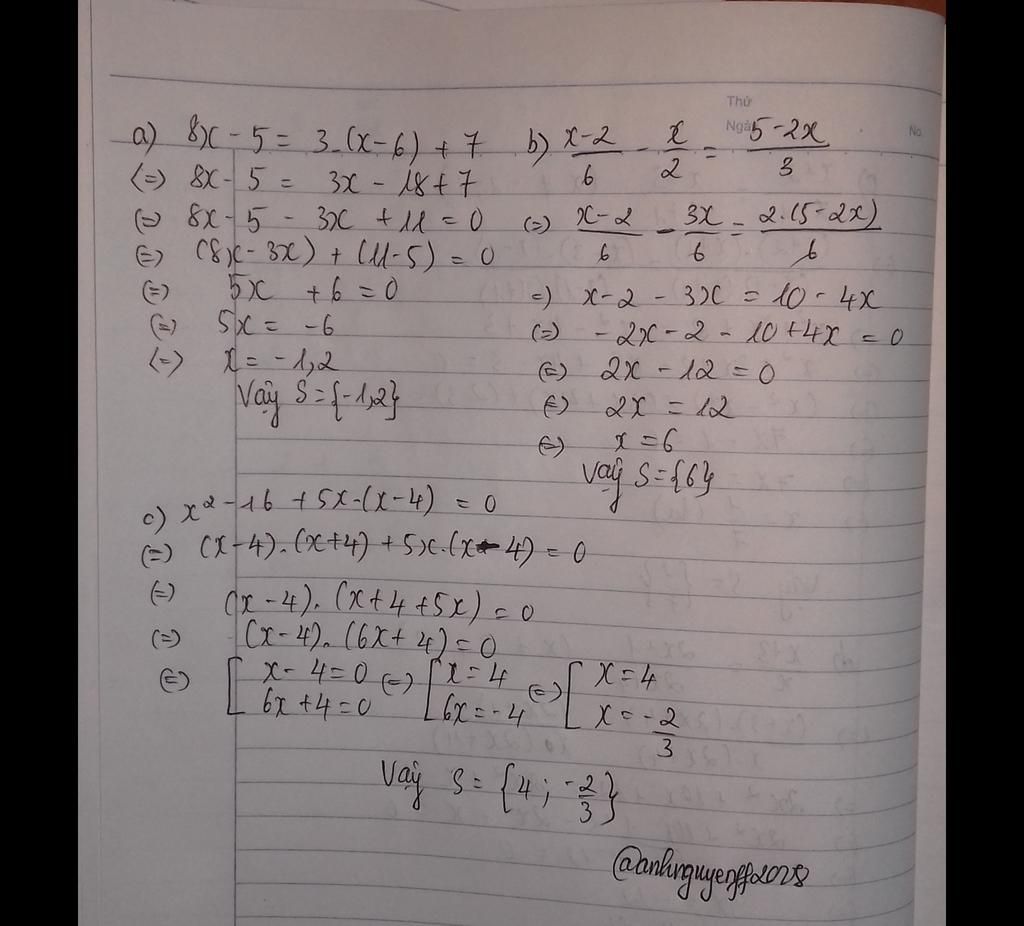 Thứ
Ngà
No.
a) 8x - 5 = 3.(x-6) + 7
(=) 8x - 5 = 3x - 18 + 7
(=) 8x - 5 - 3x + 11 = 0
(=) (8x - 3x) + (11-5) = 0
(=) 5x + 6 = 0
(=) 5x = -6
(=) x = -1,2
Vậy S = {-1,2}
b) x-2/6 - x/2 = 5-2x/3
(=) x-2/6 - 3x/6 = 2.(5-2x)/6
=) x-2 - 3x = 10 - 4x
(=) -2x - 2 - 10 + 4x = 0
(=) 2x - 12 = 0
(=) 2x = 12
(=) x = 6
Vậy S = {6}
c) x² - 16 + 5x.(x-4) = 0
(=) (x-4).(x+4) + 5x.(x-4) = 0
(=) (x-4).(x+4+5x) = 0
(=) (x-4).(6x+4) = 0
(=) [x-4=0 (=) [x=4 (=) [x=4
6x+4=0 6x=-4 x=-2/3
Vậy S = {4; -2/3}
@anhnguyenff2028